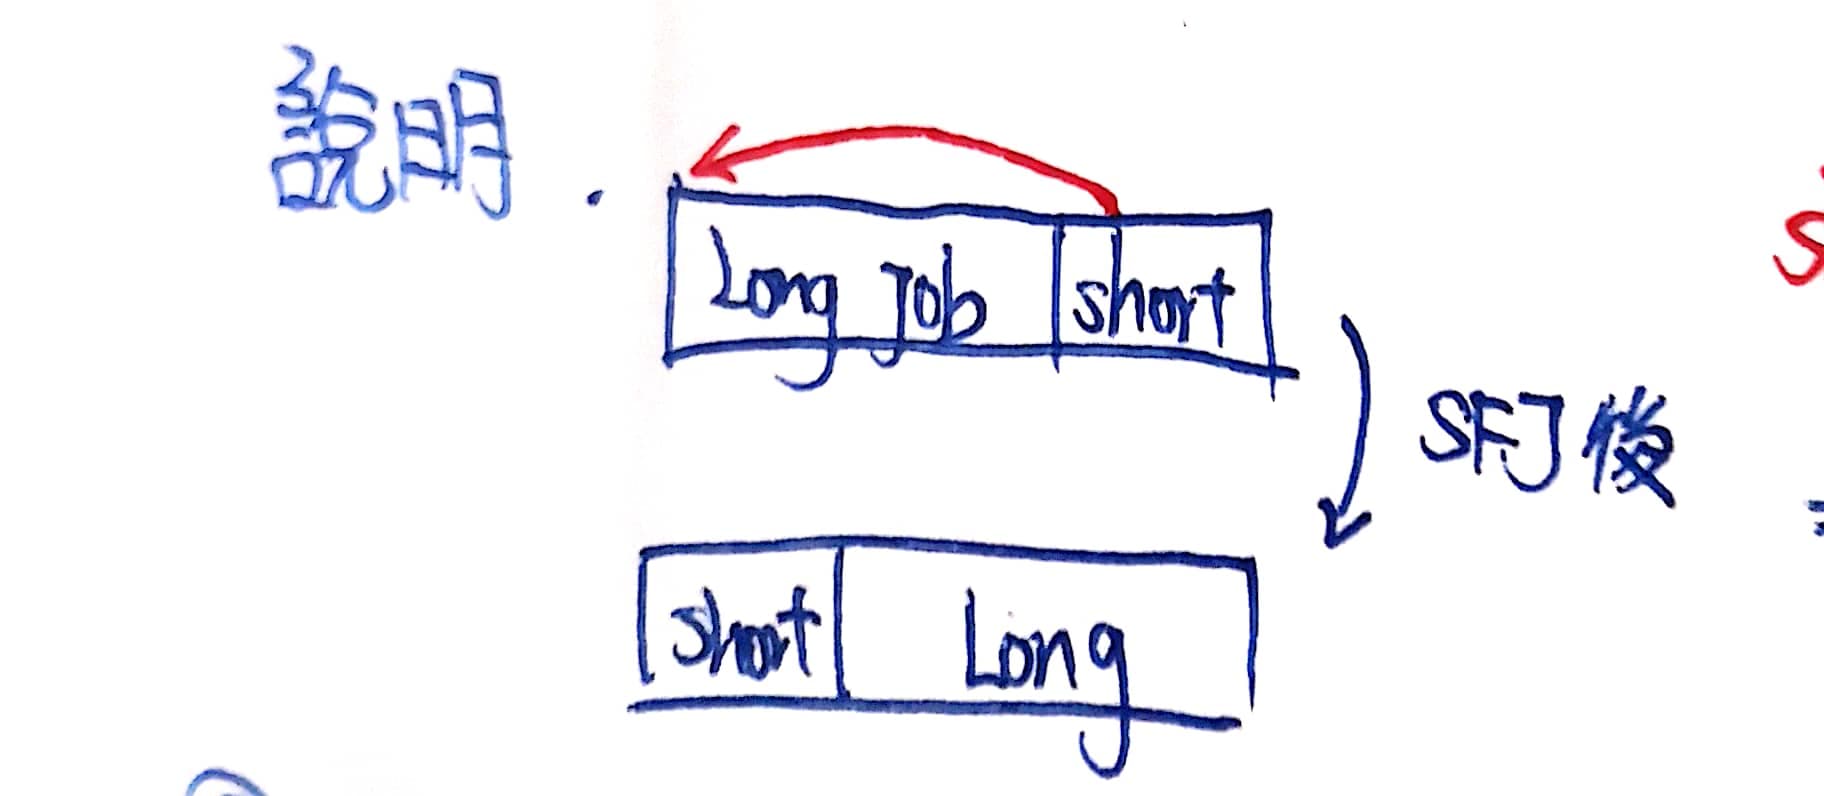 說明.
Long Job short
SFJ後
short Long